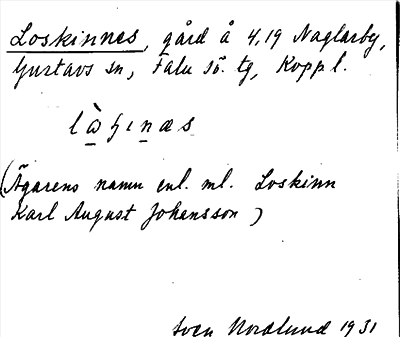 Loskinnes, gård å 4,19 Naglarby,
Gustavs sn, Falu sö. tg, Koppl.
(Ägarens namn enl. ml. Loskinn
Karl August Johansson)
Sven Nordlund 1931